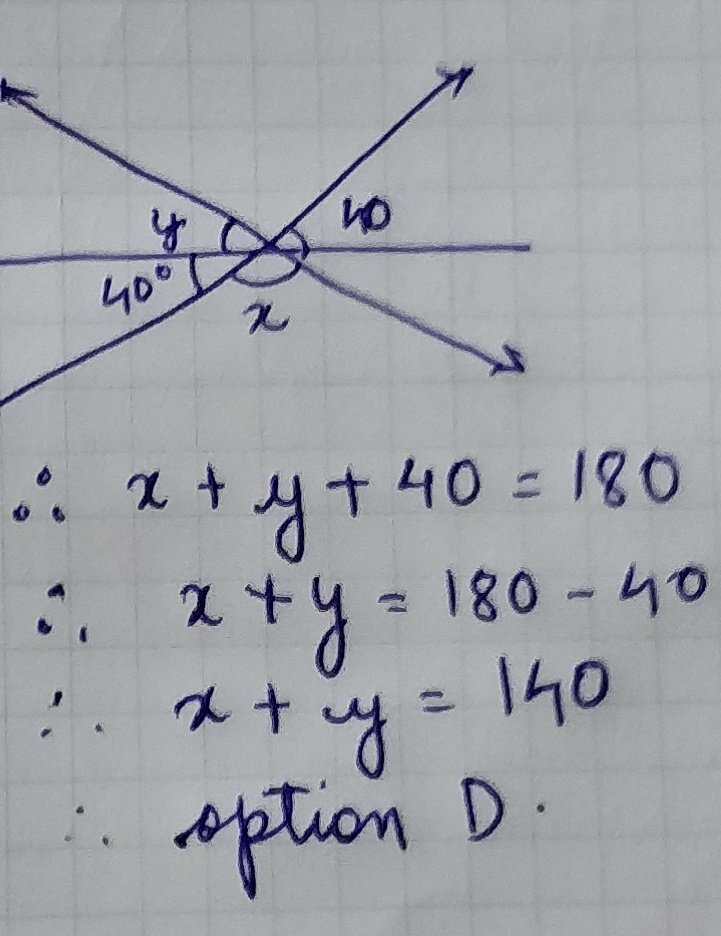 y 40
40°
x
∴ x + y + 40 = 180
∴ x + y = 180 - 40
∴ x + y = 140
∴ option D.